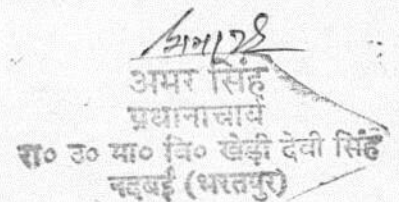 अमर सिंह
प्रधानाचार्य
रा० उ० मा० वि० खेड़ी देवी सिंह
नदबई (भरतपुर)